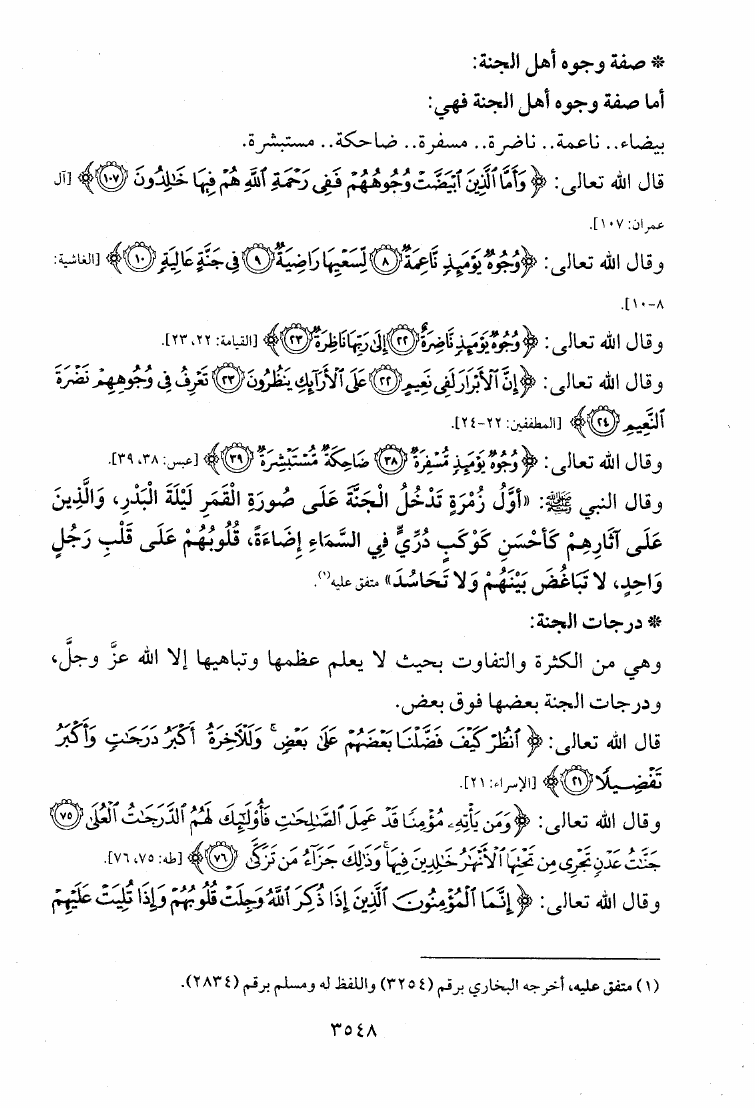 * صفة وجوه أهل الجنة:
أما صفة وجوه أهل الجنة فهي:
بيضاء.. ناعمة.. ناضرة.. مسفرة.. ضاحكة.. مستبشرة.
قال الله تعالى: ﴿ وَأَمَّا الَّذِينَ ابْيَضَّتْ وُجُوهُهُمْ فَفِي رَحْمَةِ اللَّهِ هُمْ فِيهَا خَالِدُونَ ١٠٧ ﴾ [آل
عمران: ١٠٧].
وقال الله تعالى: ﴿وُجُوهٌ يَوْمَئِذٍ نَّاعِمَةٌ ٨ لِّسَعْيِهَا رَاضِيَةٌ ٩ فِي جَنَّةٍ عَالِيَةٍ ١٠ ﴾ [الغاشية:
٨-١٠].
وقال الله تعالى: ﴿وُجُوهٌ يَوْمَئِذٍ نَّاضِرَةٌ ٢٢ إِلَى رَبِّهَا نَاظِرَةٌ ٢٣ ﴾ [القيامة: ٢٢، ٢٣].
وقال الله تعالى: ﴿ إِنَّ الْأَبْرَارَ لَفِي نَعِيمٍ ٢٢ عَلَى الْأَرَائِكِ يَنظُرُونَ ٢٣ تَعْرِفُ فِي وُجُوهِهِمْ نَضْرَةَ
النَّعِيمِ ٢٤ ﴾ [المطففين: ٢٢-٢٤].
وقال الله تعالى: ﴿وُجُوهٌ يَوْمَئِذٍ مُّسْفِرَةٌ ٣٨ ضَاحِكَةٌ مُّسْتَبْشِرَةٌ ٣٩ ﴾ [عبس: ٣٨، ٣٩].
وقال النبي ﷺ: «أَوَّلُ زُمْرَةٍ تَدْخُلُ الْجَنَّةَ عَلَى صُورَةِ الْقَمَرِ لَيْلَةَ الْبَدْرِ، وَالَّذِينَ
عَلَى آثَارِهِمْ كَأَحْسَنِ كَوْكَبٍ دُرِّيٍّ فِي السَّمَاءِ إِضَاءَةً، قُلُوبُهُمْ عَلَى قَلْبِ رَجُلٍ
وَاحِدٍ، لا تَبَاغُضَ بَيْنَهُمْ وَلا تَحَاسُدَ» متفق عليه(١).
* درجات الجنة:
وهي من الكثرة والتفاوت بحيث لا يعلم عظمها وتباهيها إلا الله عزَّ وجلَّ،
ودرجات الجنة بعضها فوق بعض.
قال الله تعالى: ﴿ انْظُرْ كَيْفَ فَضَّلْنَا بَعْضَهُمْ عَلَى بَعْضٍ وَلَلْآخِرَةُ أَكْبَرُ دَرَجَاتٍ وَأَكْبَرُ
تَفْضِيلًا ٢١ ﴾ [الإسراء: ٢١].
وقال الله تعالى: ﴿وَمَن يَأْتِهِ مُؤْمِنًا قَدْ عَمِلَ الصَّالِحَاتِ فَأُولَئِكَ لَهُمُ الدَّرَجَاتُ الْعُلَى ٧٥
جَنَّاتُ عَدْنٍ تَجْرِي مِن تَحْتِهَا الْأَنْهَارُ خَالِدِينَ فِيهَا وَذَلِكَ جَزَاءُ مَن تَزَكَّى ٧٦ ﴾ [طه: ٧٥، ٧٦].
وقال الله تعالى: ﴿ إِنَّمَا الْمُؤْمِنُونَ الَّذِينَ إِذَا ذُكِرَ اللَّهُ وَجِلَتْ قُلُوبُهُمْ وَإِذَا تُلِيَتْ عَلَيْهِمْ
(١) متفق عليه، أخرجه البخاري برقم (٣٢٥٤) واللفظ له ومسلم برقم (٢٨٣٤).
٣٥٤٨